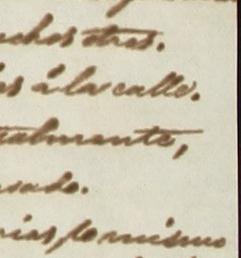 uchos otros.
es á la calle.
ealmente,
usado.
rias lo mismo